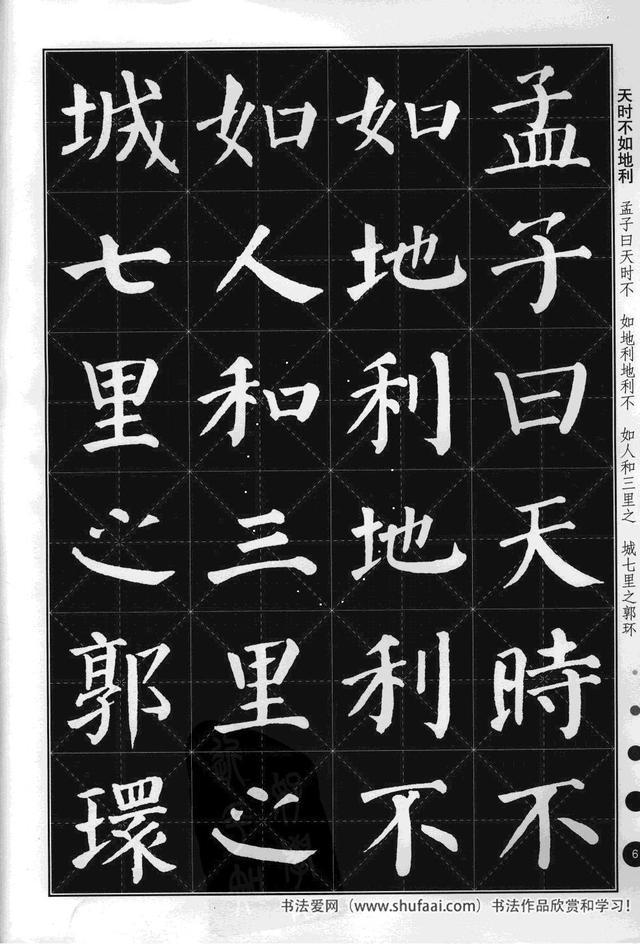 孟子曰天時不
如地利地利不
如人和三里之
城七里之郭環
天时不如地利 孟子曰天时不 如地利地利不 如人和三里之 城七里之郭环
6
书法爱网（www.shufaai.com）书法作品欣赏和学习！